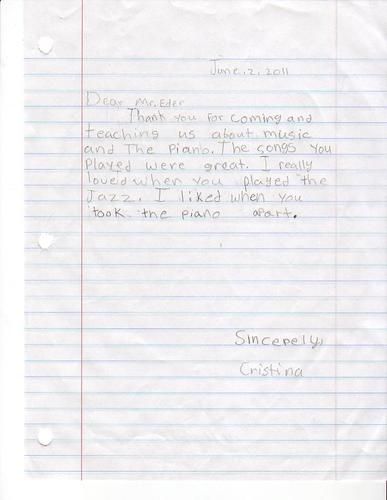 June, 2, 2011
Dear Mr. Eder
Thank you for coming and
teaching us about music
and The Piano. The songs you
Played were great. I really
loved when you played the
Jazz. I liked when you
took the piano apart.
Sincerely,
Cristina